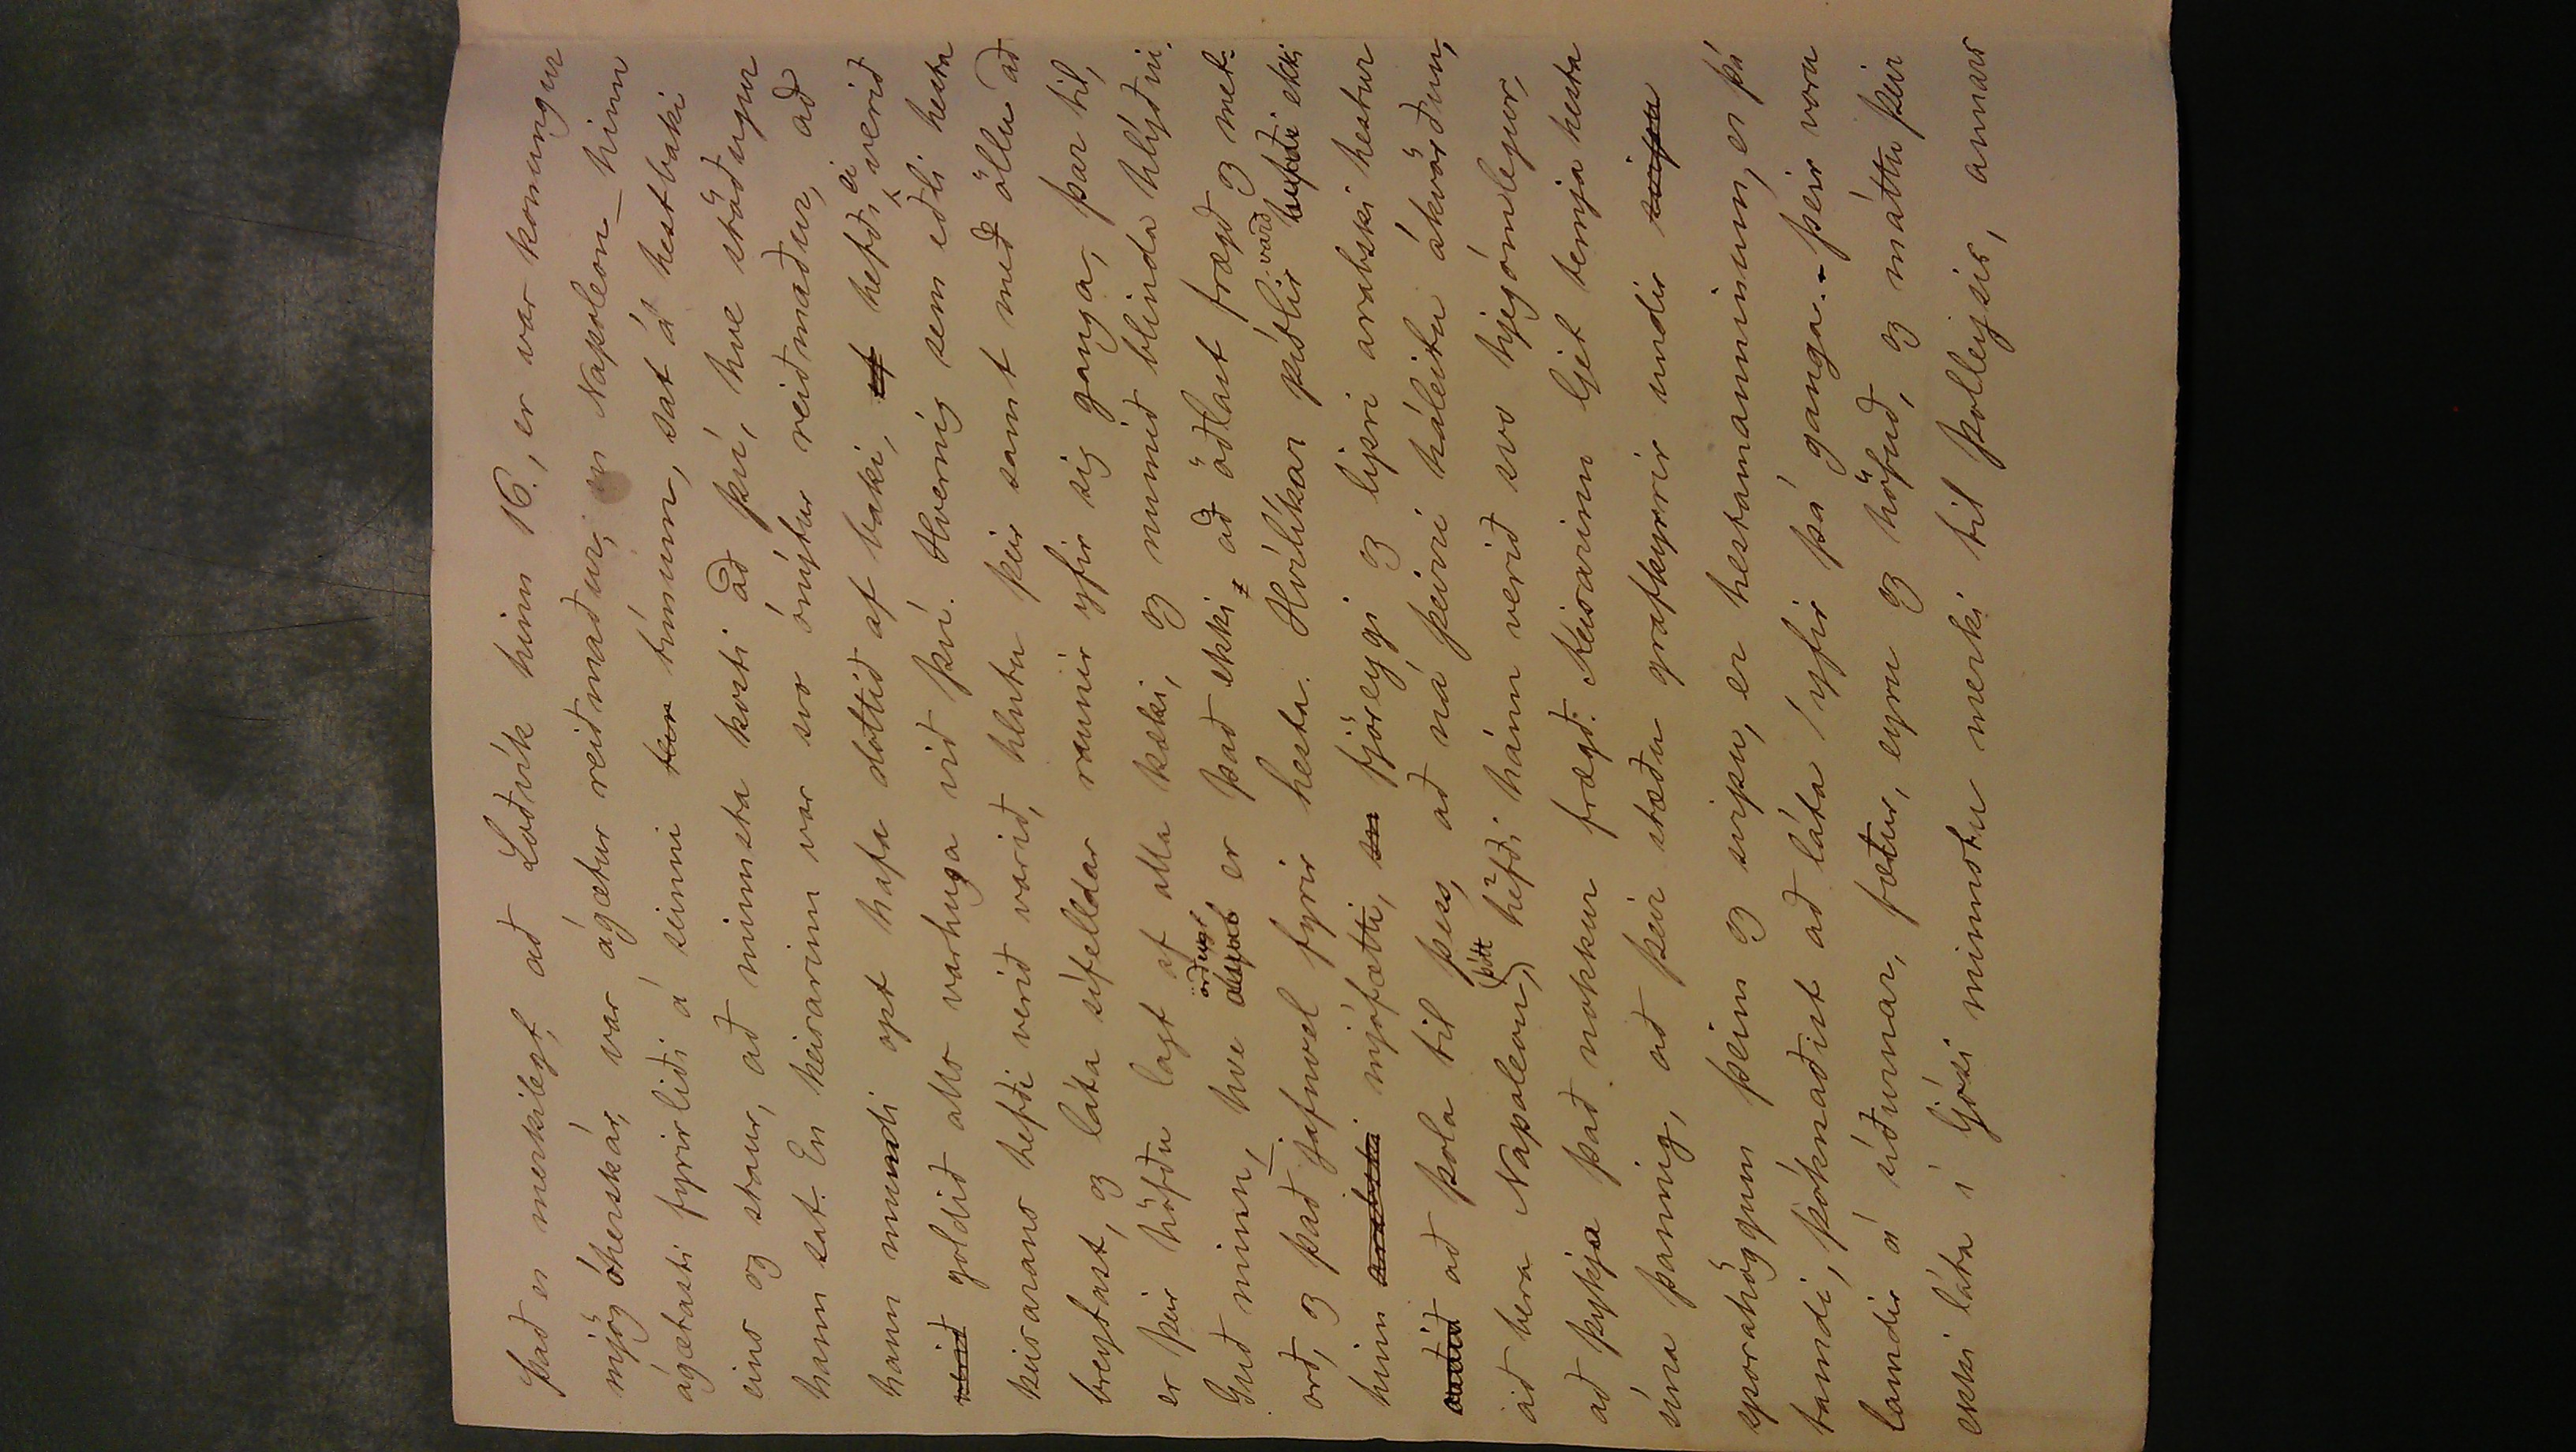 Það er merkilegt, að Loðvík hinn 16., er var konungur
mjög óherskár, var ágætur reiðmaður; en Napoleon – hinn
ágætasti fyrirliði á seinni tímum, sat á hestbaki
eins og staur, að minnsta kosti að því, hve stöðugur
hann sat. En keisarinn var svo ónýtur reiðmaður, að
hann mundi opt hafa dottið af baki, ef hefði ei verið
verið goldið alls varhuga við því. Hvernig sem eðli hesta
keisarans hefði verið varið, hlutu þeir samt með öllu að
breytast, og láta sífelldar raunir yfir sig ganga, þar til,
er þeir höfðu lagt af alla kæki, og numið blinda hlýðni.
Guð minn, hve örðugt er það ekki, að öðlast frægð og met-
orð, og það jafnvel fyrir hesta. Hvílíkar píslir varð ekki
hinn mjófætti, fjöreygi og lipri arabski hestur
að þola til þess, að ná þeirri háleitu ákvörðun,
að bera Napoleon, (þótt) hefði hánn verið svo hjegómlegur,
að þykja það nokkur frægð. Keisarinn ljet temja hesta
sína þannig, að þeir stæðu grafkyrrir undir
sporahöggum þeim og svipu, er hestamanninum, er þá
tamdi, þóknaðist að láta yfir þá ganga. – Þeir voru
lamdir á síðurnar, fætur, eyru og höfuð, og máttu þeir
ekki láta í ljósi minnstu merki til þolleysis, annars